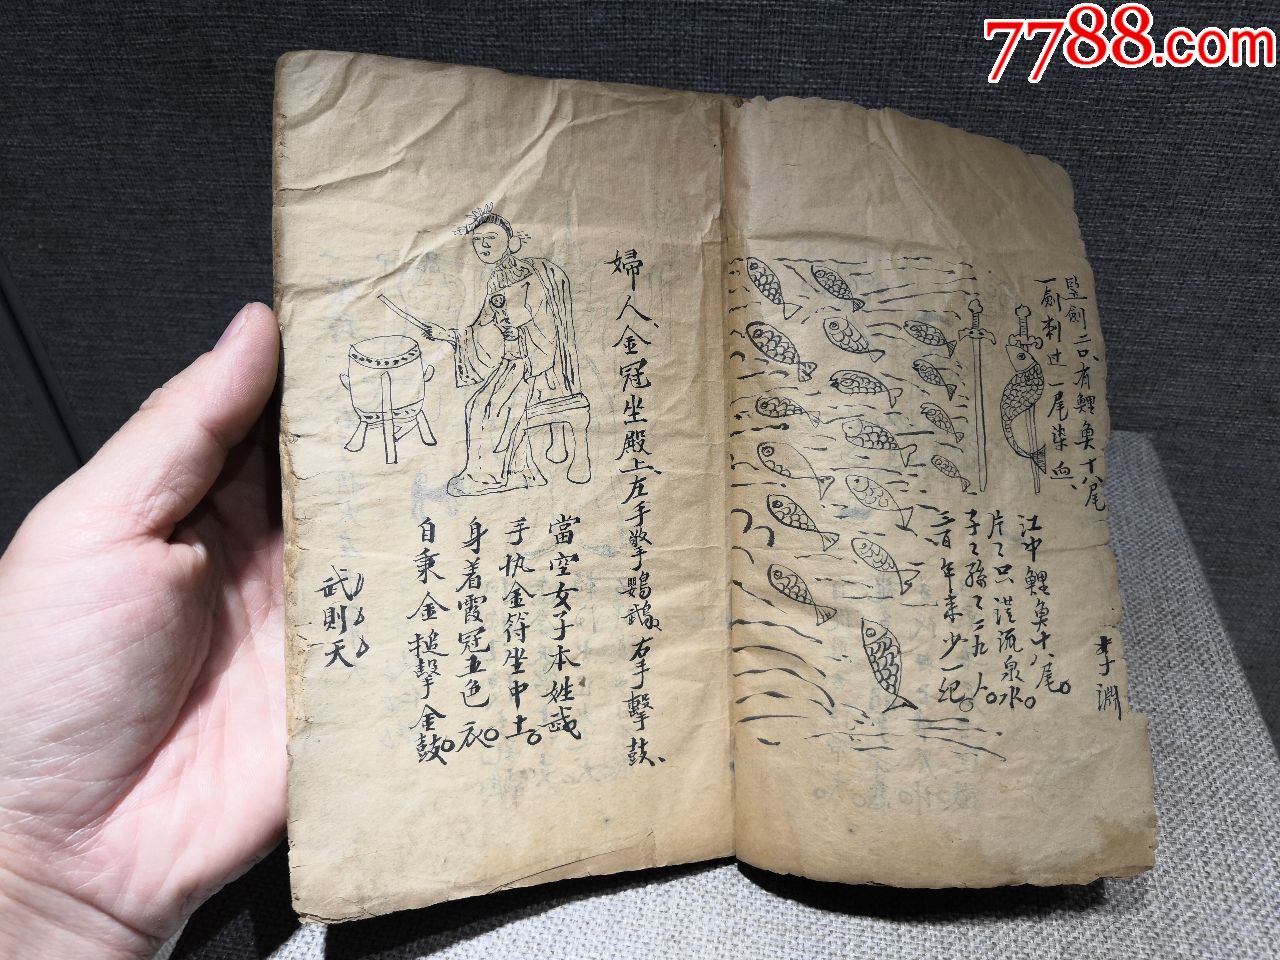 7788.com
竪劍二口、有鯉魚十八尾
一劍刺过一尾染血、
江中鯉魚十八尾。
片〻只説流泉水。
子〻孫〻二九人。
三百年来少一紀。
李淵
婦人金冠坐殿上、左手擎鸚鵡、右手擊鼓、
當空女子本姓武
手执金符坐中土。
身着霞冠五色衣。
自秉金搥擊金鼓。
武則天